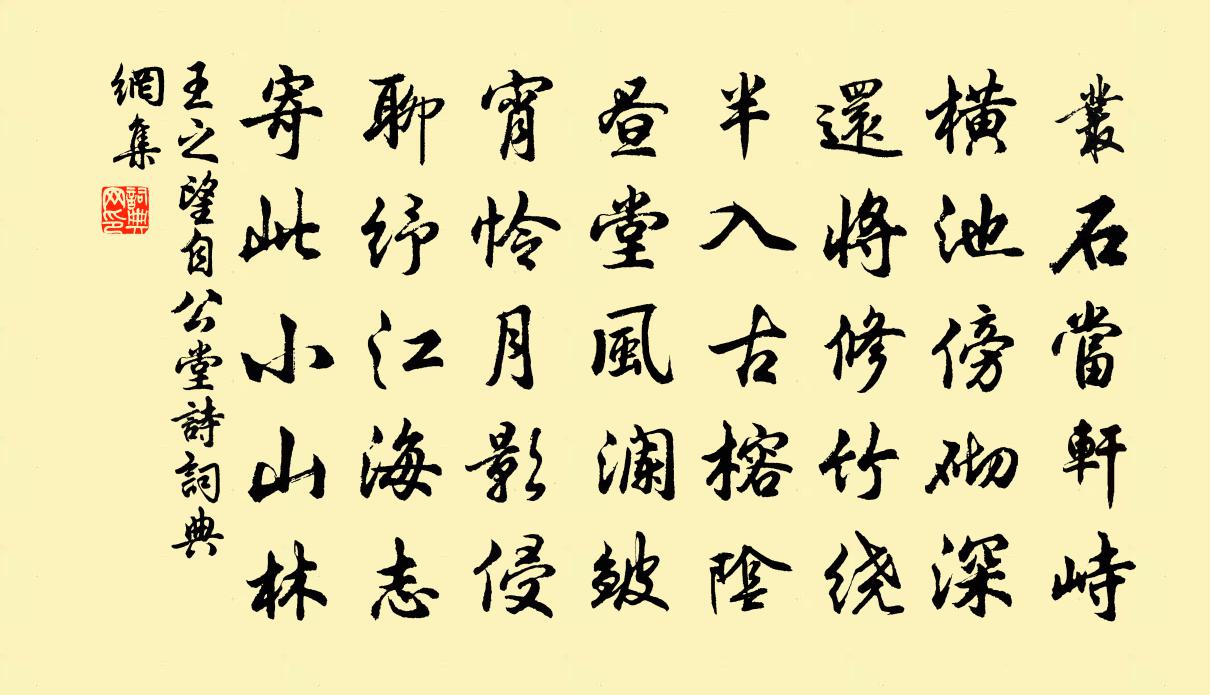 叢石當軒峙
橫池傍砌深
還將修竹绕
半入古榕陰
昼堂風澜皴
宵怜月影侵
聊紓江海志
寄此小山林
王之望自公堂詩詞典
網集
詞典网印